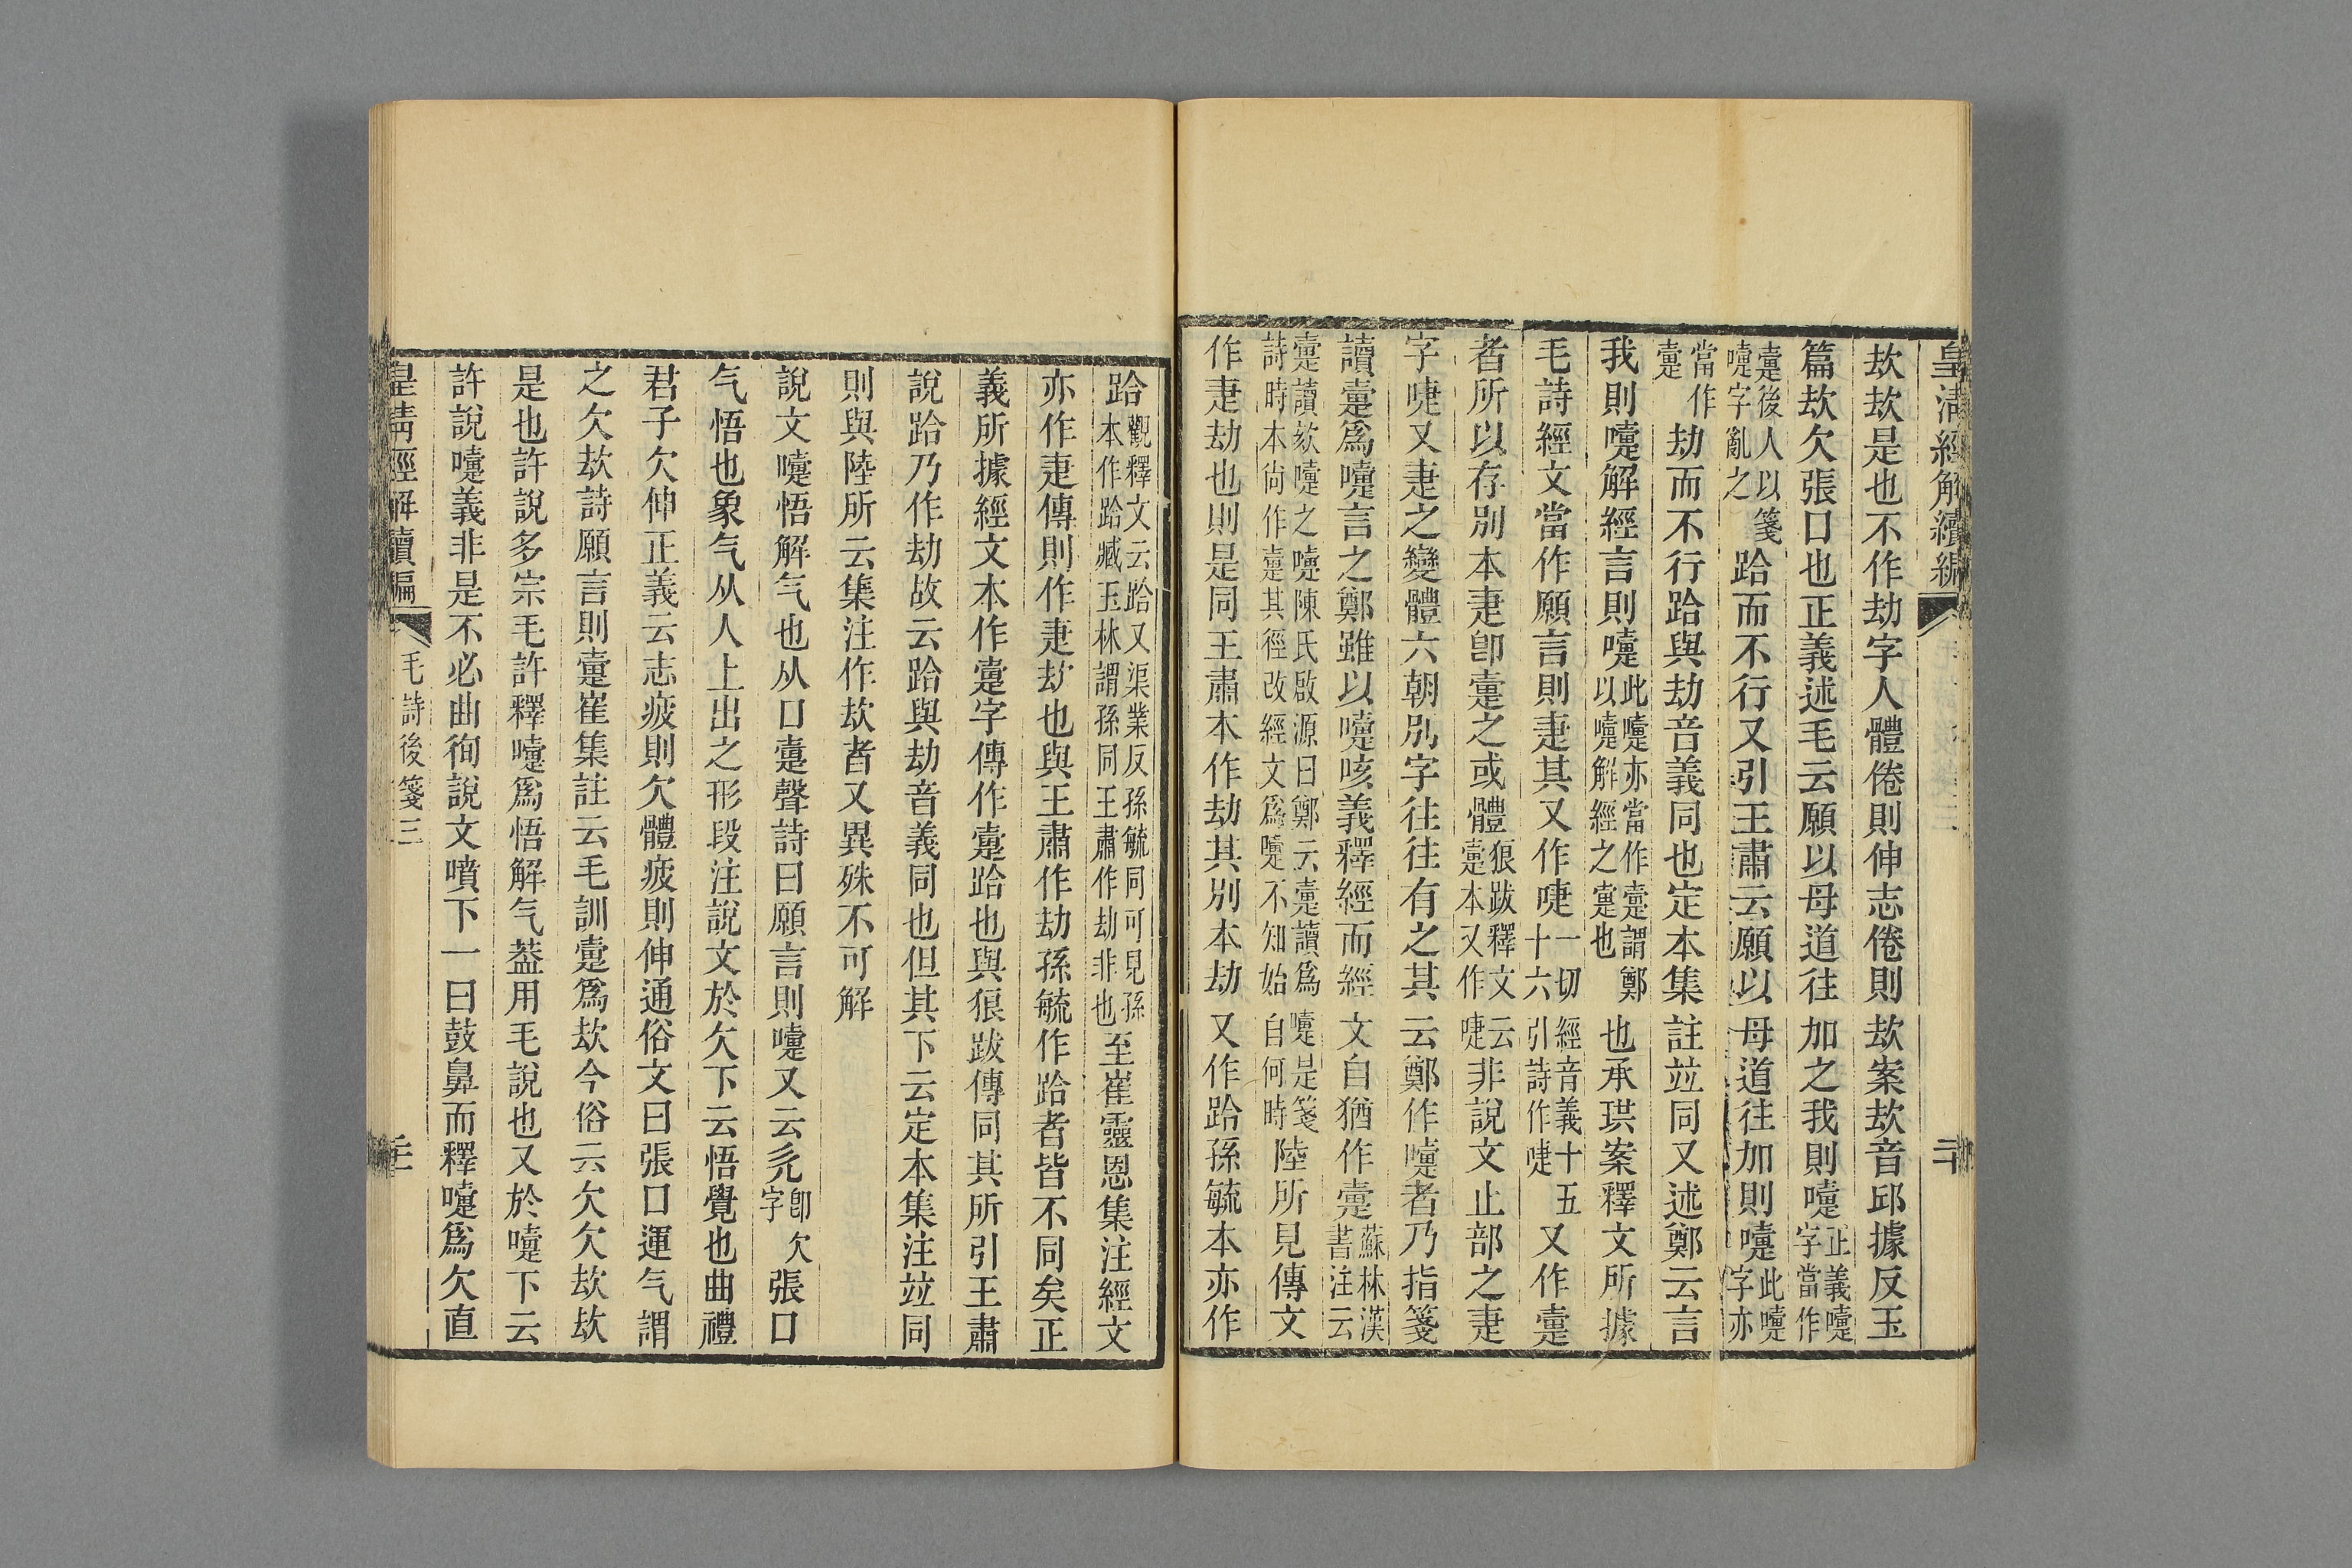 皇清經解續編
二十
㰦㰦是也不作劫字人體倦則伸志倦則㰦案㰦音邱據反玉
篇㰦欠張口也正義述毛云願以母道往加之我則嚔正義嚔字當作
疐後人以箋嚔字亂之跲而不行又引王肅云願以母道往加則嚔此嚔字亦
當作疐劫而不行跲與劫音義同也定本集註竝同又述鄭云言
我則嚔解經言則嚔此嚔亦當作疐謂鄭以嚔解經之疐也也承珙案釋文所據
毛詩經文當作願言則疌其又作啑一切經音義十五十六引詩作啑又作疐
者所以存別本疌卽疐之或體狼跋釋文云疐本又作啑非說文止部之疌
字啑又疌之變體六朝別字往往有之其云鄭作嚔者乃指箋
讀疐爲嚔言之鄭雖以嚔咳義釋經而經文自猶作疐蘇林漢書注云
疐讀欬嚔之嚔陳氏啟源曰鄭云疐讀爲嚔是箋詩時本尙作疐其徑改經文爲嚔不知始自何時陸所見傳文
作疌劫也則是同王肅本作劫其別本劫又作跲孫毓本亦作
跲觀釋文云跲又渠業反孫毓同可見孫本作跲臧玉林謂孫同王肅作劫非也至崔靈恩集注經文
亦作疌傳則作疌㰦也與王肅作劫孫毓作跲者皆不同矣正
義所據經文本作疐字傳作疐跲也與狼跋傳同其所引王肅
說跲乃作劫故云跲與劫音義同也但其下云定本集注竝同
則與陸所云集注作㰦者又異殊不可解
說文嚔悟解气也从口疐聲詩曰願言則嚔又云旡卽欠字張口
气悟也象气从人上出之形段注說文於欠下云悟覺也曲禮
君子欠伸正義云志疲則欠體疲則伸通俗文曰張口運气謂
之欠㰦詩願言則疐崔集註云毛訓疐爲㰦今俗云欠欠㰦㰦
是也許說多宗毛許釋嚔爲悟解气葢用毛說也又於嚔下云
許說嚔義非是不必曲徇說文噴下一曰鼓鼻而釋嚔爲欠直
皇清經解續編
毛詩後箋三